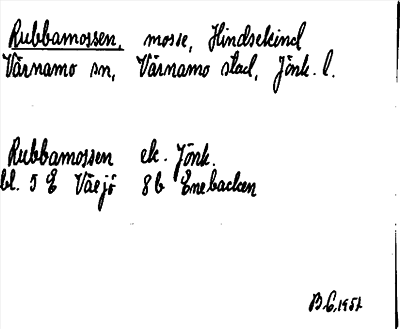 Rubbamossen, mosse, Hindsekind
Värnamo sn, Värnamo stad, Jönk. l.
Rubbamossen ek. Jönk.
bl. 5 E Växjö 8 b Enebacken